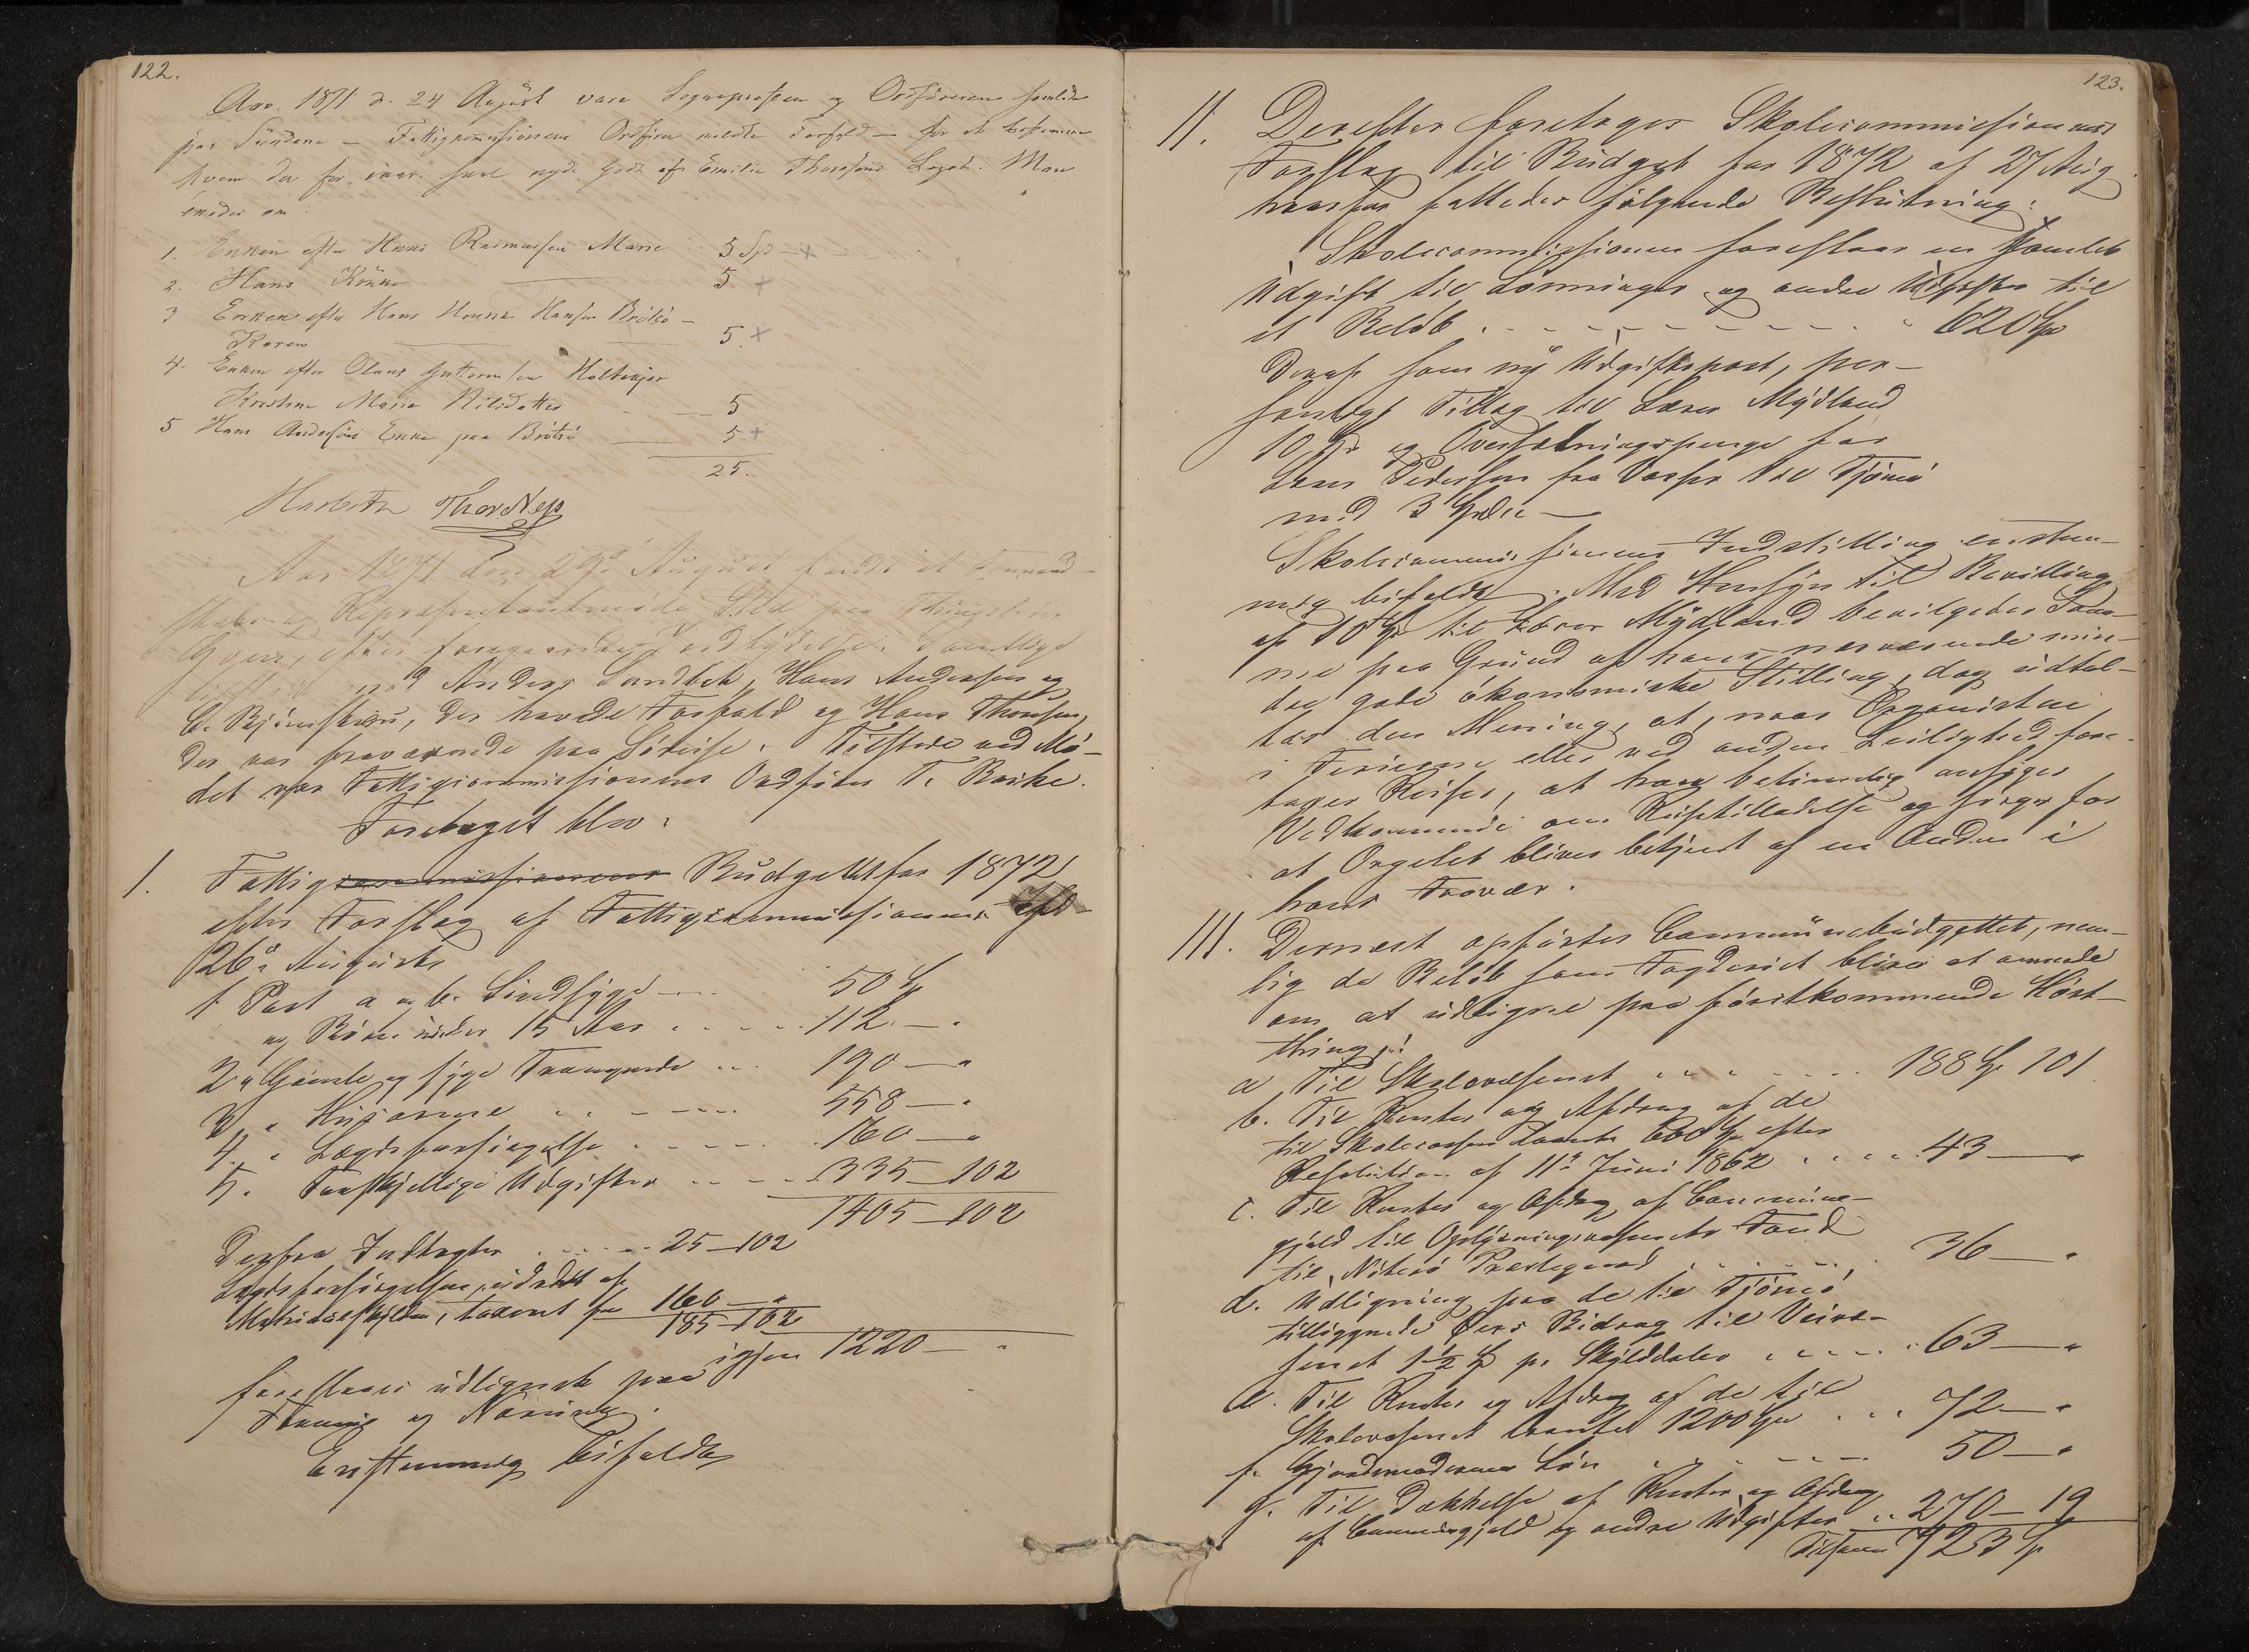 122.
Aar 1871 d. 24 August vare Sognepresten og Ordføreren samlede
paa Sundene – Fattigkommissionens Ordfører meldte Forfald – for at bestemme
hvem der for iaar skal nyde godt af Emilie Thoresens Legat. Man
enedes om:
1. Enken efter Hans Rasmussen Marie 5 Spd
2. Hans 5
3 Enken efter Hans Hansen Brötsö –
Karen 5.
4. Enken efter Olaus Guttormsen Holtekjær
Kirstine Marie Nilsdatter 5
5 Hans Andersens Enke paa Brötsö 5
25.
Thor Ness
Aar 1871 den 29de August holdtes et Formand-
skabs og Repræsentantmøde Sted paa Thingstedet
efter foregaaende Indbydelse. Samtlige
Anders Sundbek, Hans Andersen og
C. Bjönnskou, der havde Forfald og Hans Thomsen,
der var fraværende paa Söreise. Tilstede ved Mö-
det var Fattigcommissionens Ordförer T. Bache.
Foretaget blev:
1. Fattigcommissionens Budgettet for 1872
efter Forslag af Fattigcommissionen
26de August
1 Post a og b. Sindssyge 50 Sp
og Börn under 15 Aar 112 – "
2 " Gamle og syge Trængende 190 – "
3 " Husarme 558 – "
4. " Lægdsforsörgelse 160 – "
5. Forskjellige Udgifter 335 – 102
1405 – 102
Derfra Indtægter 25 – 102
Lægdsforsörgelsen, udredet af
Matrikulskylden, taxeret for 160 – "
185 – 102
igjen 1220 – "
foreslaaes udlignet paa
Formue og Næring.
Enstemmig bifaldt
123.
II. Derefter foretoges Skolecommissionens
Forslag til Budget for 1872 af 27 Aug
hvorfor fattedes fölgende Beslutning:
Skolecommissionen foreslaar en samlet
Udgift til Lönninger og andre Udgifter til
et Belöb 620 Sp
Deraf som ny Udgiftspost, per-
sonligt Tillæg til Lærer Mÿdland
10 Sp og Overfartspenge for
Lærer Pedersen fra Vasser til Tjömö
med 3 Spdlr –
Skolecommissionens Indstilling enstem-
mig bifaldt. Med Hensyn til Bevilling
af 10 Sp til Lærer Mÿdland bevilgedes Sum-
men paa Grund af hans nærværende min-
dre gode ökonomiske Stilling, dog udtal-
tes den Mening, at, naar Organisten
i Ferierne eller ved anden Leilighed fore-
tager Reiser, at han betimelig ansöger
Vedkommende om Reisetilladelse og sörger for
at Orgelet bliver betjent af en Anden i
hans Fravær.
III. Dernæst opförtes Communebudgettet, nem-
lig de Belöb som Fogderiet bliver at anmode
om at udligne paa förstkommende Höst-
thing:
a Til Skolevæsenet 188 Sp 101
b. Til Renter og Afdrag af de
til Skolecassen laante 600 Sp efter
Resolution af 11te Juni 1862 43 – "
c. Til Renter og Afdrag af Commune-
gjæld til Oplysningsvæsenets Fond
til Nöterö Præstegaard 36 – "
d. Udligning paa de til Tjömö
tilliggende Öers Bidrag til Veivæ-
senet 1½ Sp pr Skylddaler 63 – "
e. Til Renter og Afdrag af de til
Skolevæsenet laante 1200 Sp 72 – "
f. Gjordemoderens Lön 50 – "
g. Til Dækkelse af Renter og Afdrag
af Communegjæld og andre Udgifter 270 – 19
Tilsammen 723 Sp